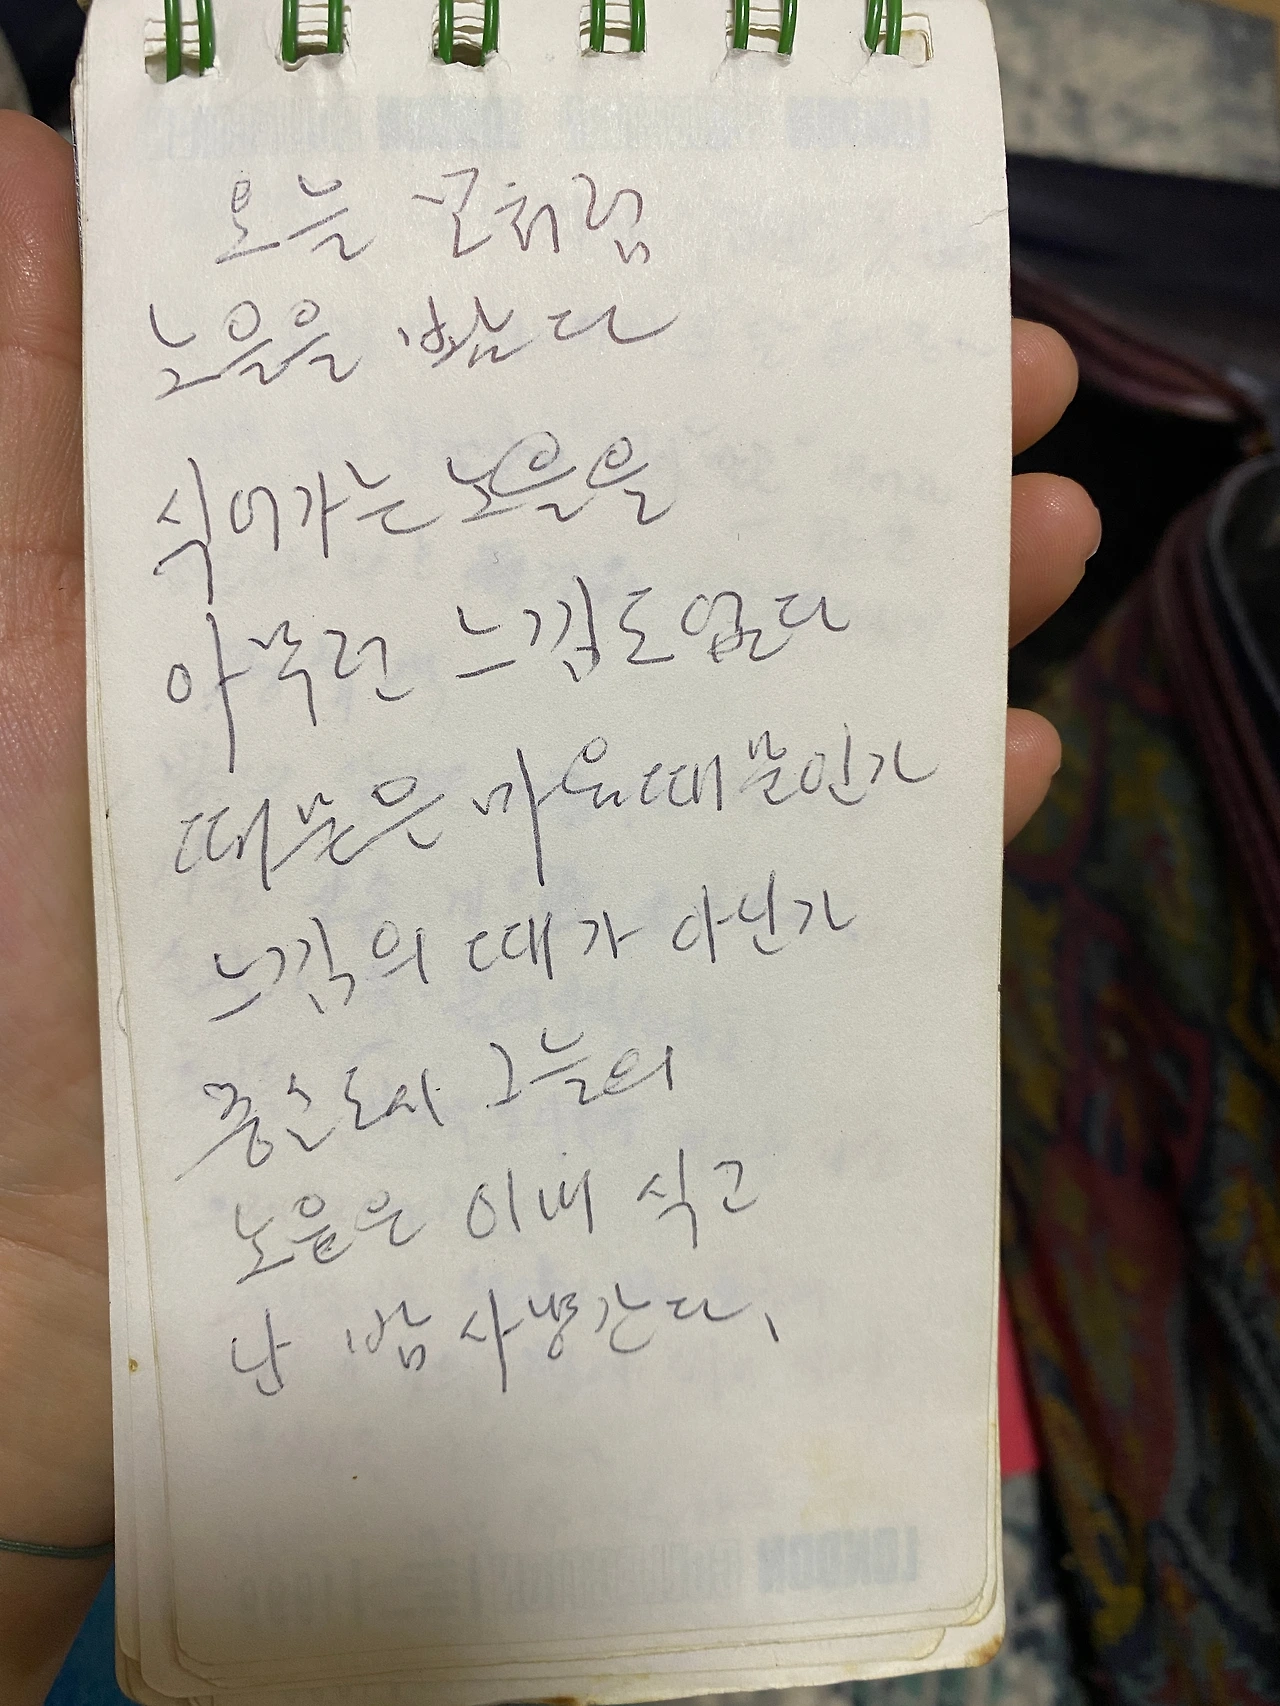 오늘 꾼처럼
노을을 봤다
식어가는 노을을
아무런 느낌도 없다
때문은 마음때문인가
느낌의 때가 아닌가
중소도시 그늘의
노을은 이내 식고
난 밤 사냥간다.
LONDON
LONDON